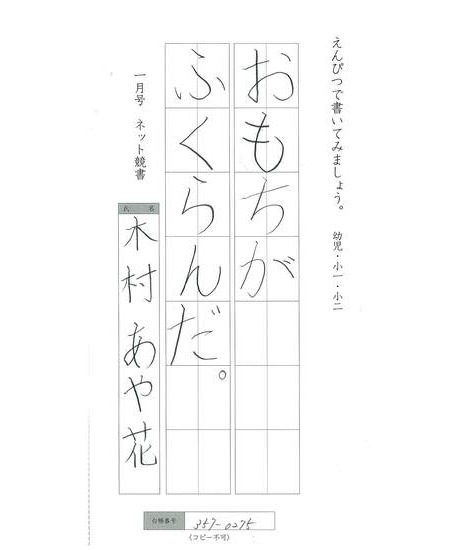 えんぴつで書いてみましょう。　幼児・小一・小二
おもちが
ふくらんだ。
一月号　ネット競書
氏名
木村 あや花
台帳番号 357-0275
(コピー不可)